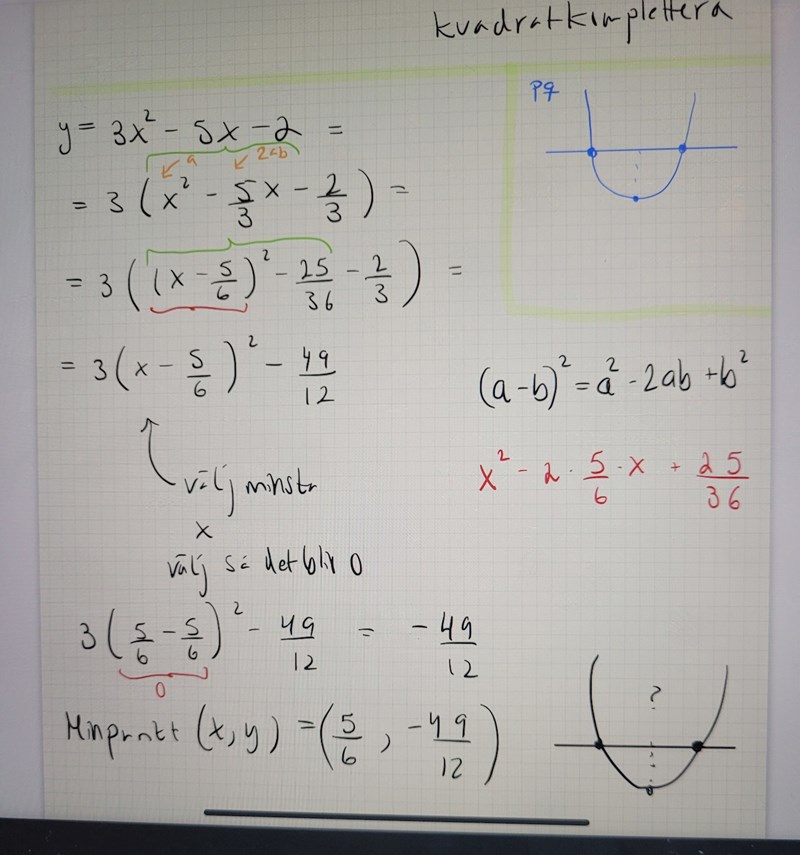 kvadratkomplettera
pq
y = 3x² - 5x - 2 =
a 2ab
= 3 ( x² - 5/3 x - 2/3 ) =
= 3 ( (x - 5/6)² - 25/36 - 2/3 ) =
= 3 ( x - 5/6 )² - 49/12
(a-b)² = a² - 2ab + b²
x² - 2 · 5/6 · x + 25/36
välj minsta
x
välj så det blir 0
3 ( 5/6 - 5/6 )² - 49/12 = - 49/12
0
?
Minpunkt (x,y) = ( 5/6 , -49/12 )